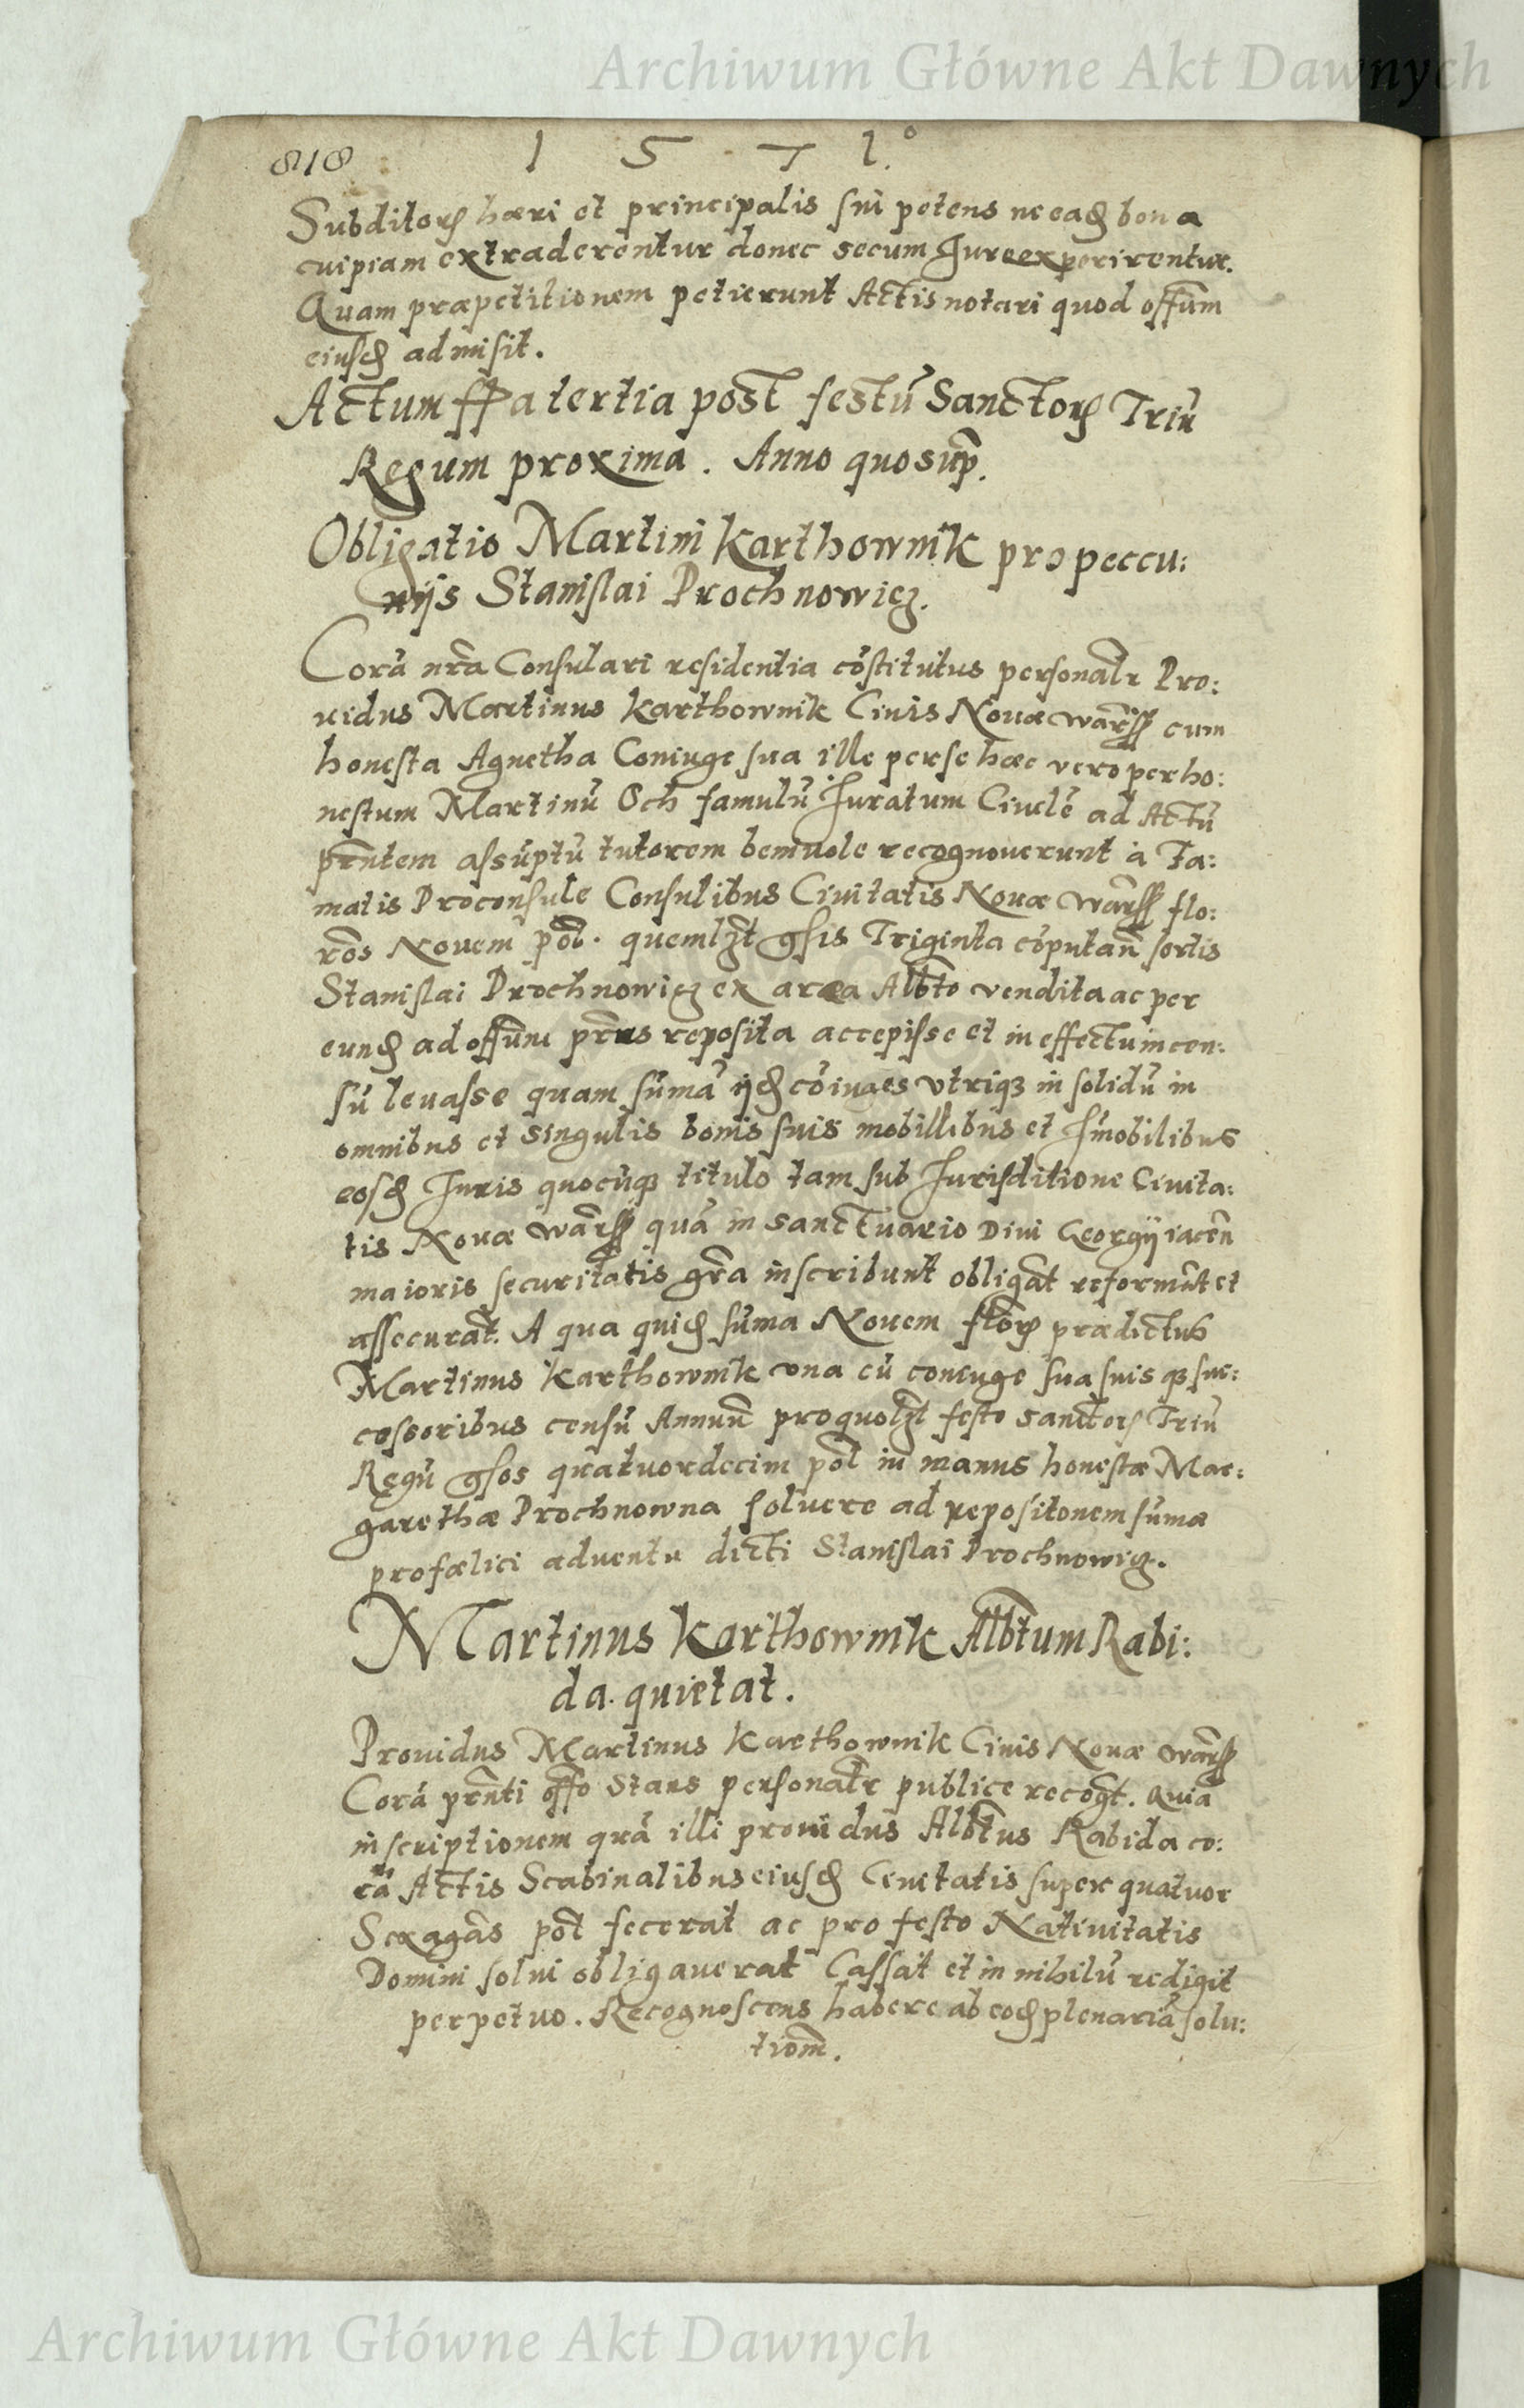 Archiwum Główne Akt Dawnych
818 1571.°
Subditorꝝ hæri et principalis sui petens ne eadē bona
cuipiam extraderentur donec secum Jure experirentur.
Quam præpetitionem petierunt Actis notari quod offūm
eiusdē admisit.
Actum ffa tertia post festū Sanctorꝝ Triū
Regum proxima. Anno quo sup̄.
Obligatio Martini Karthownik pro peccu:
nijs Stanislai Prochnowicz.
Corā nr̄a Consulari residentia cōstitutus personalr̄ Pro:
uidus Martinus Karthownik Ciuis Nouæ Warsß cum
honesta Agnetha Coniuge sua ille per se hæc vero per ho:
nestum Martinū Och famulū Juratum Ciuilē ad Actū
prn̄tem assūptū tutorem beniuole recognouerunt a Fa:
matis Proconsule Consulibus Ciuitatis Nouæ Warsß flo:
rōs Nouem pōl. quemlꝫt gsis Triginta cōputan̄ sortis
Stanislai Prochnowicz ex area Albt̄o vendita ac per
eundē ad offūm prn̄s reposita accepisse et in effectu in cen:
sū leuasse quam sūmā ijdē cōiuges vtriqꝫ in solidū in
omnibus et singulis bonis suis mobillibus et Jm̄obilibus
eosdē Juris quocūqꝫ titulo tam sub Jurisditione Ciuita:
tis Nouæ Warsß quā in sanctuario Diui Georgij iacēn
maioris securitatis gr̄a inscribunt obligāt reformāt et
assecurāt. A qua quidē sūma Nouem flōrꝝ prædictus
Martinus Karthownik vna cū coniuge sua suisqꝫ suc:
cessoribus censū Annuū pro quolꝫt festo Sanctorꝝ Triū
Regū gsos quatuordecim pōl in manus honestæ Mar:
garethæ Prochnowna soluere ad repositonem sūmæ
pro fælici aduentu dicti Stanislai Prochnowicz.
Martinus Karthownik Albt̄um Rabi:
da quietat.
Prouidus Martinus Karthownik Ciuis Nouæ Warsß
Corā prn̄ti offō Stans personalr̄ publice recogt̄. Quia
inscriptionem quā illi prouidus Albt̄us Rabida co:
rā Actis Scabinalibus eiusdē Ciuitatis super quatuor
Sexagās pōl fecerat ac pro festo Natiuitatis
Domini solui obligauerat Cassat et in nihilū redigit
perpetuo. Recognoscens habere ab eodē plenariā solu:
tionē.
Archiwum Główne Akt Dawnych